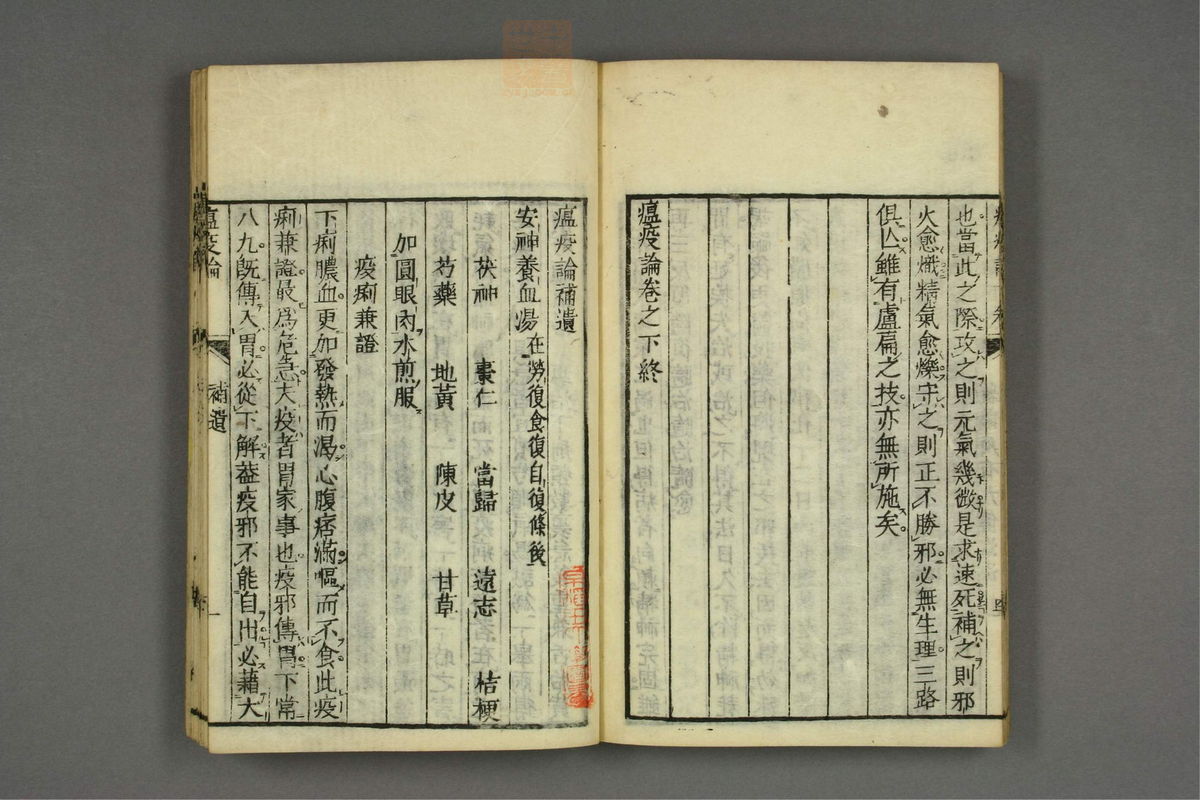 也當此之際攻之則元氣幾微是求速死補之則邪
火愈熾精氣愈爍守之則正不勝邪必無生理三路
俱亾雖有盧扁之技亦無所施矣
瘟疫論卷之下終
瘟疫論補遺
安神養血湯在勞復食復自復條後
茯神 棗仁 當歸 遠志 桔梗
芍藥 地黃 陳皮 甘草
加圓眼肉水煎服
疫痢兼證
下痢膿血更加發熱而渴心腹痞滿嘔而不食此疫
痢兼證最爲危急夫疫者胃家事也疫邪傳胃下常
八九既傳入胃必從下解葢疫邪不能自出必藉大
瘟疫論 補遺 一